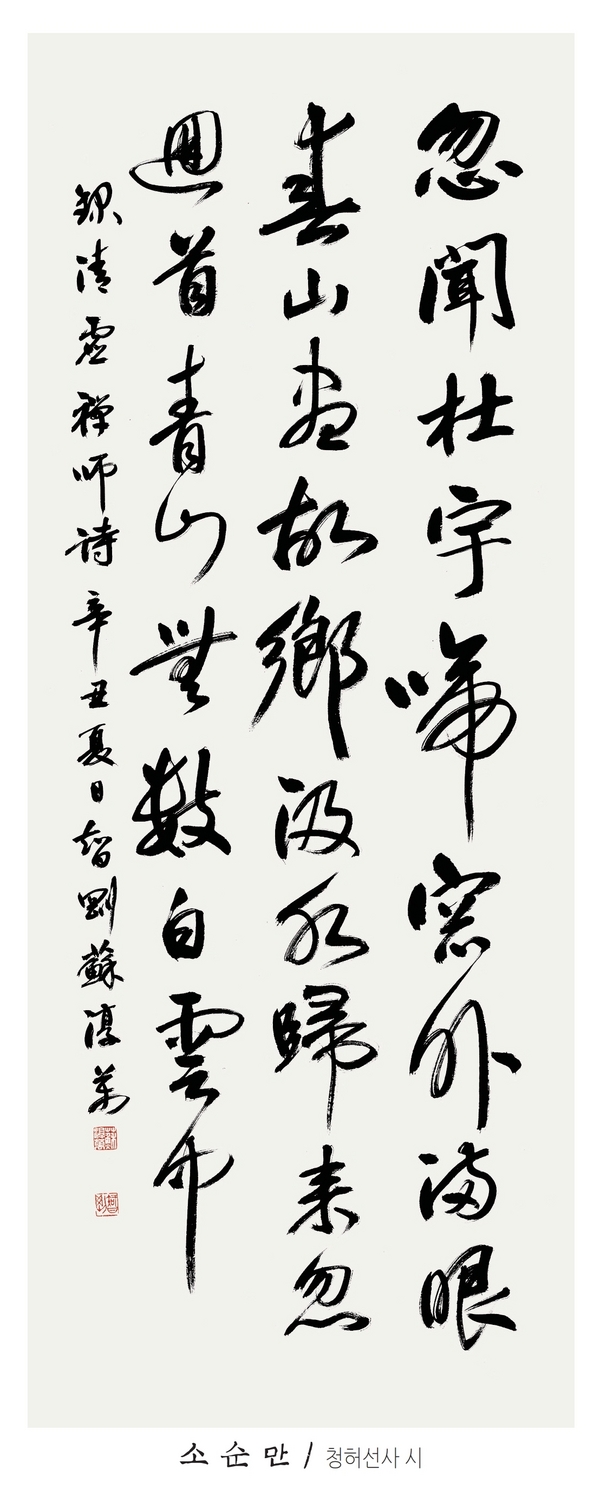 忽聞杜宇啼窓外滿眼
春山盡故鄉汲水歸來忽
迴首青山無數白雲中
錄清虛禪師詩辛丑夏日智剛蘇淳萬
소순만 / 청허선사 시